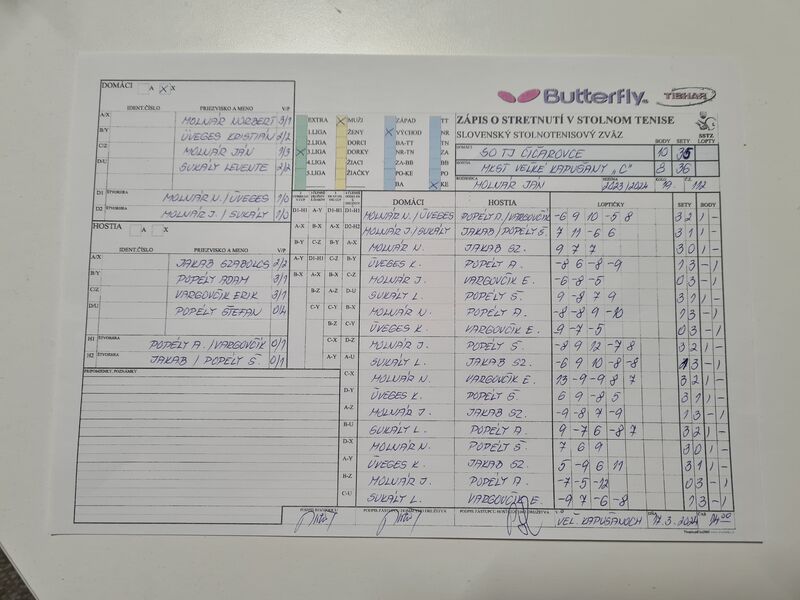 DOMÁCI A X
Butterfly
TIBHAR
IDENT.ČÍSLO PRIEZVISKO A MENO V/P
A/X MOLNÁR NORBERT 3/1
B/Y ÜVEGES KRISTIÁN 2/2
C/Z MOLNÁR JÁN
D/U SUKALY LEVENTE 2/2
D1 ŠTVORHRA MOLNÁR N. / ÜVEGES 1/0
D2 ŠTVORHRA MOLNÁR J. / SUKALY 1/0
HOSTIA A X
IDENT.ČÍSLO PRIEZVISKO A MENO V/P
A/X JAKAB SZABOLCS 2/2
B/Y POPÉLY ADAM 3/1
C/Z VARGOVČÍK ERIK 3/1
D/U POPÉLY ŠTEFAN 0/4
H1 ŠTVORHRA POPÉLY A. / VARGOVČÍK 0/1
H2 ŠTVORHRA JAKAB / POPÉLY Š. 0/1
PRIPOMIENKY, POZNÁMKY
EXTRA MUŽI ZÁPAD TT
1.LIGA ŽENY VÝCHOD NR
2.LIGA DORCI BA-TT TN
3.LIGA DORKY NR-TN ZA
4.LIGA ŽIACI ZA-BB BB
5.LIGA ŽIAČKY PO-KE PO
BA KE
ZÁPIS O STRETNUTÍ V STOLNOM TENISE
SLOVENSKÝ STOLNOTENISOVÝ ZVÄZ
SSTZ
BODY SETY LOPTY
DOMÁCI SO TJ ČIČAROVCE 10 35
HOSTIA MKST VEĽKÉ KAPUŠANY "C" 8 36
MOLNÁR JÁN 2023/2024 19. 112
DOMÁCI HOSTIA LOPTIČKY SETY BODY
D1-H1 MOLNÁR N. / ÜVEGES POPÉLY A. / VARGOVČÍK -6 9 10 -5 8 3 2 1 -
D2-H2 MOLNÁR J. / SUKALY JAKAB / POPÉLY Š 7 11 -6 6 3 1 1 -
MOLNÁR N. JAKAB SZ. 9 7 7 3 0 1 -
ÜVEGES K. POPÉLY A. -8 6 -8 -9 1 3 - 1
MOLNÁR J. VARGOVČÍK E. -6 -8 -5 0 3 - 1
D-U SUKALY L. POPÉLY Š. 9 -8 7 9 3 1 1 -
MOLNÁR N. POPÉLY A. -8 -8 9 -10 1 3 - 1
C-Y ÜVEGES K. VARGOVČÍK E. 9 -7 -5 0 3 - 1
D-Z MOLNÁR J. POPÉLY Š. -8 9 12 -7 8 3 2 1 -
A-U SUKALY L. JAKAB SZ. -6 9 10 -8 -8
C-X MOLNÁR N. VARGOVČÍK E. 13 -9 -9 8 7 3 2 1 -
D-Y ÜVEGES K. POPÉLY Š 6 9 -8 5 3 1 1 -
A-Z MOLNÁR J. JAKAB SZ. -9 -8 7 -9 1 3 - 1
B-U SUKALY L. POPÉLY A. 9 -7 6 -8 7 3 2 1 -
D-X MOLNÁR N. POPÉLY Š. 7 6 9 3 0 1 -
A-Y ÜVEGES K. JAKAB SZ. 5 -9 6 11 3 1 1 -
B-Z MOLNÁR J. POPÉLY A. -7 -5 -12 0 3 - 1
C-U SUKALY L. VARGOVČÍK E. -9 7 -6 -8 1 3 - 1
VEĽ. KAPUŠANOCH 17.3.2024